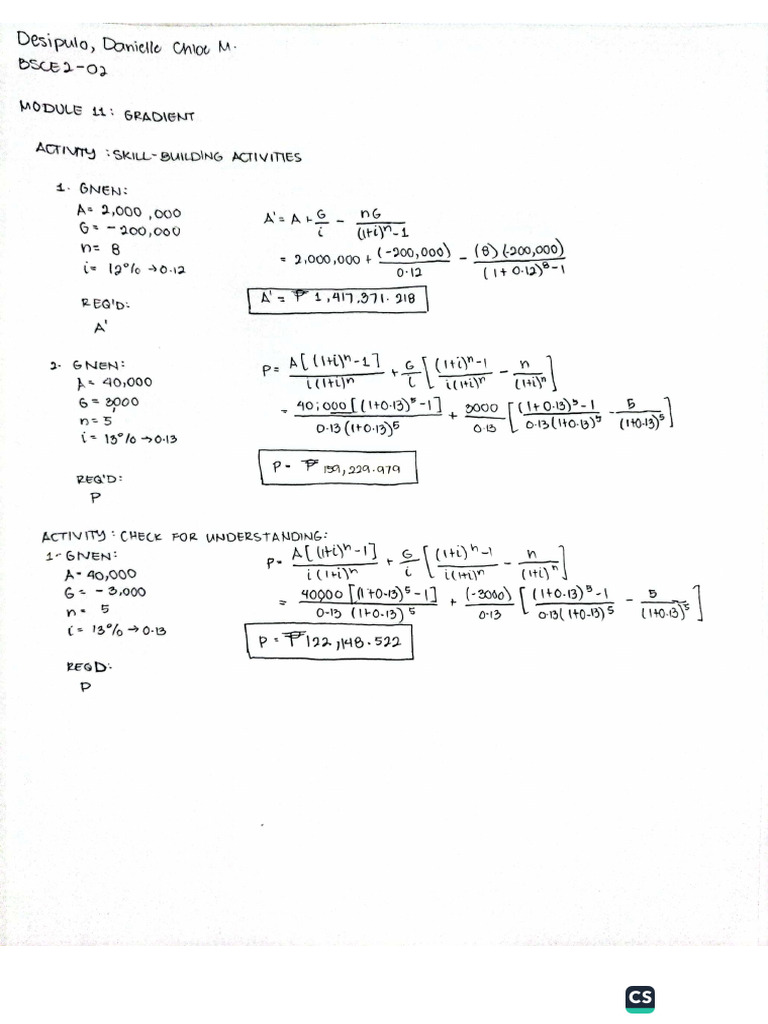 Desipulo, Danielle Chloe M.
BSCE2-02
MODULE 11: GRADIENT
ACTIVITY: SKILL-BUILDING ACTIVITIES
1. GIVEN:
A = 2,000,000
G = -200,000
n = 8
i = 12% → 0.12
REQ'D:
A'
A' = A + G/i - nG/((1+i)^n - 1)
= 2,000,000 + (-200,000)/0.12 - (8)(-200,000)/((1+0.12)^8 - 1)
A' = ₱ 1,417,371.218
2. GIVEN:
A = 40,000
G = 3,000
n = 5
i = 13% → 0.13
REQ'D:
P
P = A[(1+i)^n - 1]/i(1+i)^n + G/i [(1+i)^n - 1/i(1+i)^n - n/(1+i)^n]
= 40,000[(1+0.13)^5 - 1]/0.13(1+0.13)^5 + 3000/0.13 [(1+0.13)^5 - 1/0.13(1+0.13)^5 - 5/(1+0.13)^5]
P = ₱ 159,229.979
ACTIVITY: CHECK FOR UNDERSTANDING:
1- GIVEN:
A = 40,000
G = -3,000
n = 5
i = 13% → 0.13
REQD:
P
P = A[(1+i)^n - 1]/i(1+i)^n + G/i [(1+i)^n - 1/i(1+i)^n - n/(1+i)^n]
= 40000[(1+0.13)^5 - 1]/0.13(1+0.13)^5 + (-3000)/0.13 [(1+0.13)^5 - 1/0.13(1+0.13)^5 - 5/(1+0.13)^5]
P = ₱122,148.522
CS